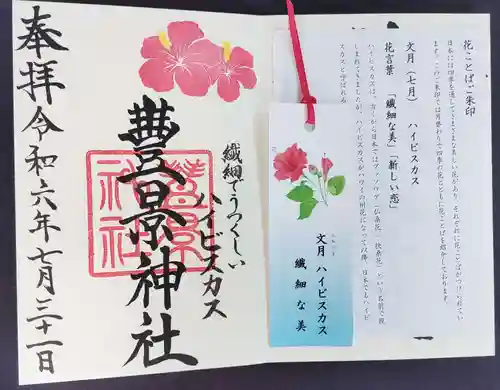 奉拝 令和六年七月三十一日
豊景神社
繊細でうつくしい
ハイビスカス
文月 ハイビスカス
繊細な美
花ことばご朱印
日本には四季を通してさまざまな美しい花があり、それぞれに花ことばがつけられてい
ます。このご朱印では月替わりで四季の花とともに花ことばを紹介しております。
文月(七月) ハイビスカス
花言葉 「繊細な美」「新しい恋」
ハイビスカスは、古くから日本ではブッソウゲ「仏桑花」「扶桑花」という名前で親
しまれてきましたが、ハイビスカスがハワイの州花になって以降、日本でもハイビ
スカスと呼ばれる